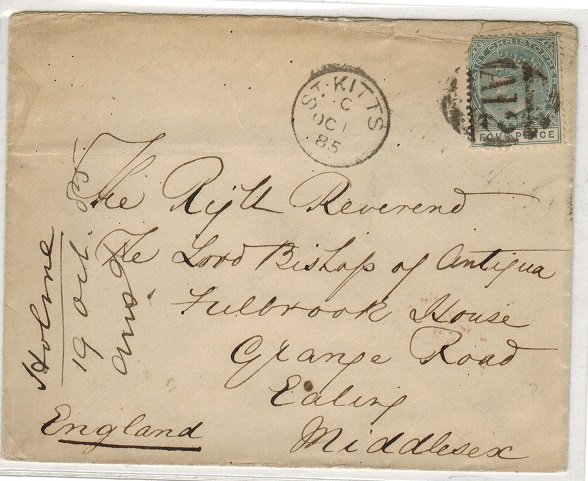 ST. CHRISTOPHER
A12
FOUR PENCE
ST. KITTS
C
OC 1
85
The Right Reverend
The Lord Bishop of Antigua
Fulbrook House
Grange Road
Ealing
Middlesex
England
Holme
19 Oct. 85